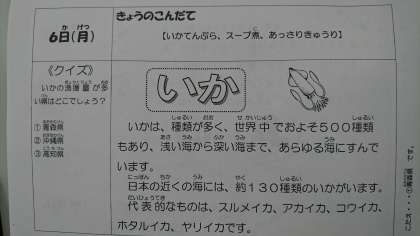 きょうのこんだて
6日(月)
【いかてんぷら、スープ煮、あっさりきゅうり】
《クイズ》
いかの漁獲量が多
い県はどこでしょう?
①青森県
②沖縄県
③高知県
いか
いかは、種類が多く、世界中でおよそ500種類
もあり、浅い海から深い海まで、あらゆる海にすんで
います。
日本の近くの海には、約130種類のいかがいます。
代表的なものは、スルメイカ、アカイカ、コウイカ、
ホタルイカ、ヤリイカです。
こたえ・・・①青森県 です。